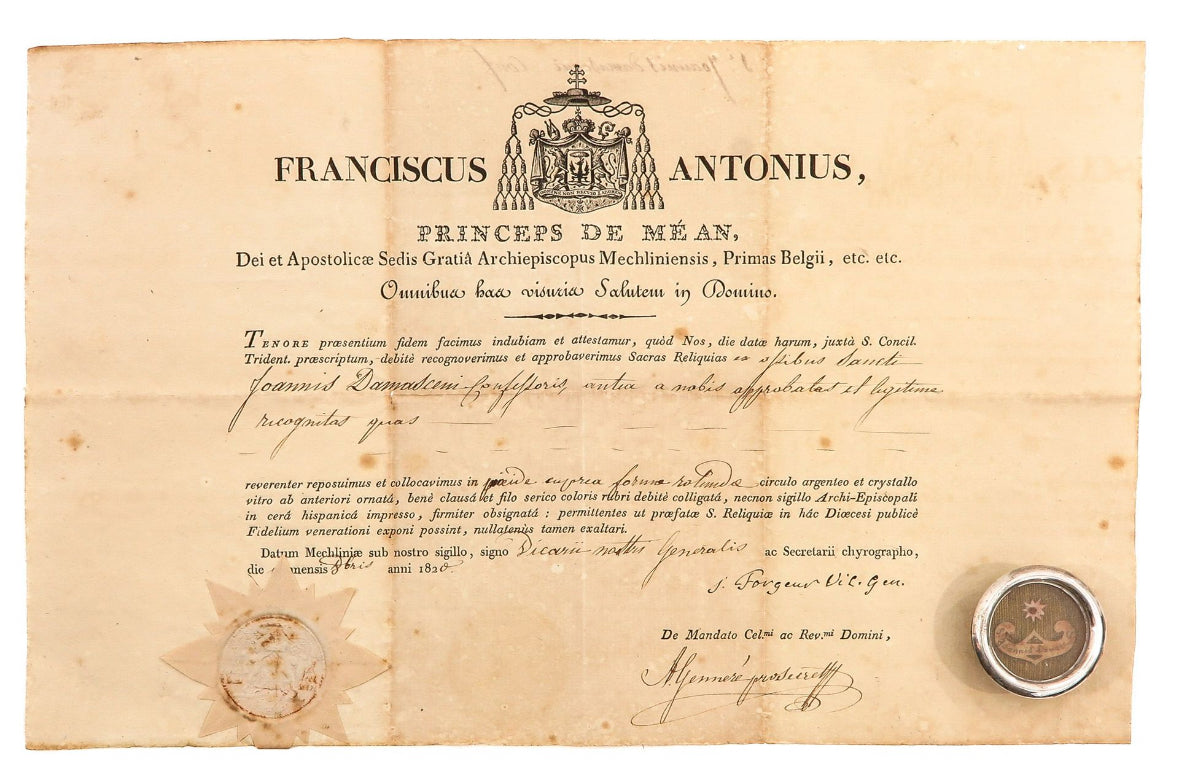 FRANCISCUS ANTONIUS,
PRINCEPS DE MÉAN,
Dei et Apostolicæ Sedis Gratiâ Archiepiscopus Mechliniensis, Primas Belgii, etc. etc.
Omnibus has visuris Salutem in Domino.
TENORE præsentium fidem facimus indubiam et attestamur, quòd Nos, die datæ harum, juxtà S. Concil.
Trident. præscriptum, debitè recognoverimus et approbaverimus Sacras Reliquias ex ossibus Sancti
Joannis Damasceni Confessoris, antea a nobis approbatas et legitime
recognitas quas
reverenter reposuimus et collocavimus in pixide cuprea forma rotundæ circulo argenteo et crystallo
vitro ab anteriori ornatâ, benè clausâ et filo serico coloris rubri debitè colligatâ, necnon sigillo Archi-Episcopali
in cerâ hispanicâ impresso, firmiter obsignatâ : permittentes ut præfatæ S. Reliquiæ in hâc Diœcesi publicè
Fidelium venerationi exponi possint, nullatenùs tamen exaltari.
Datum Mechliniæ sub nostro sigillo, signo Vicarii nostri Generalis ac Secretarii chyrographo,
die mensis 8bris anni 182
J. Forgeur Vic. Gen.
De Mandato Cel.mi ac Rev.mi Domini,